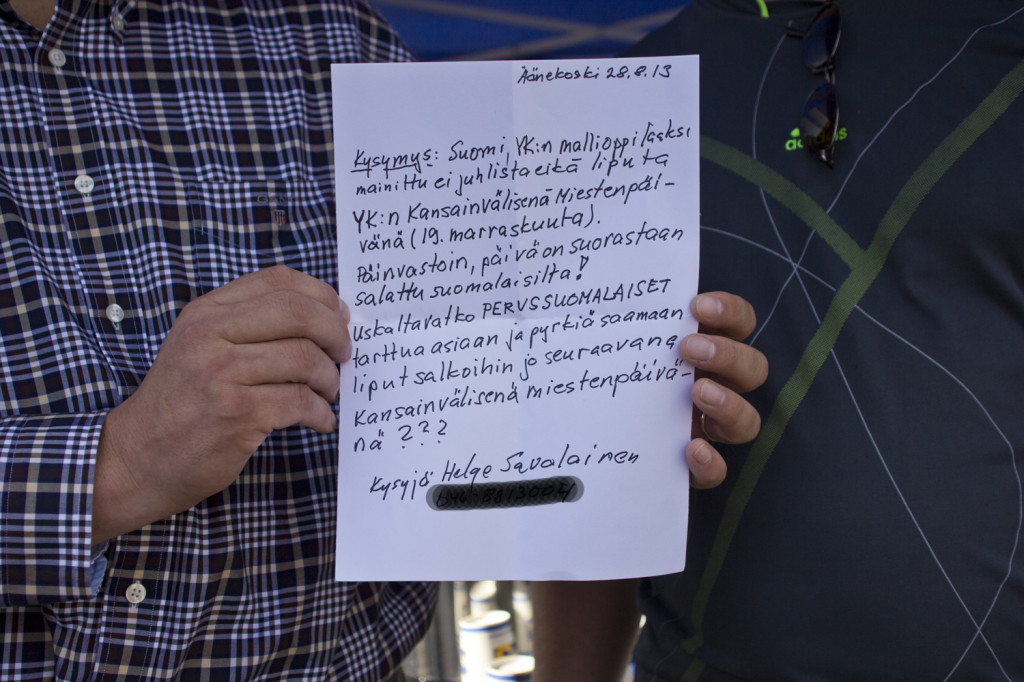 Äänekoski 28.8.13
Kysymys: Suomi, YK:n mallioppilaaksi
mainittu ei juhlista eikä liputa
YK:n Kansainvälisenä Miestenpäi-
vänä (19. marraskuuta).
Päinvastoin, päivä on suorastaan
salattu suomalaisilta!
Uskaltavatko PERUSSUOMALAISET
tarttua asiaan ja pyrkiä saamaan
liput salkoihin jo seuraavana
Kansainvälisenä miestenpäivä-
nä ???
Kysyjä Helge Savalainen
adidas